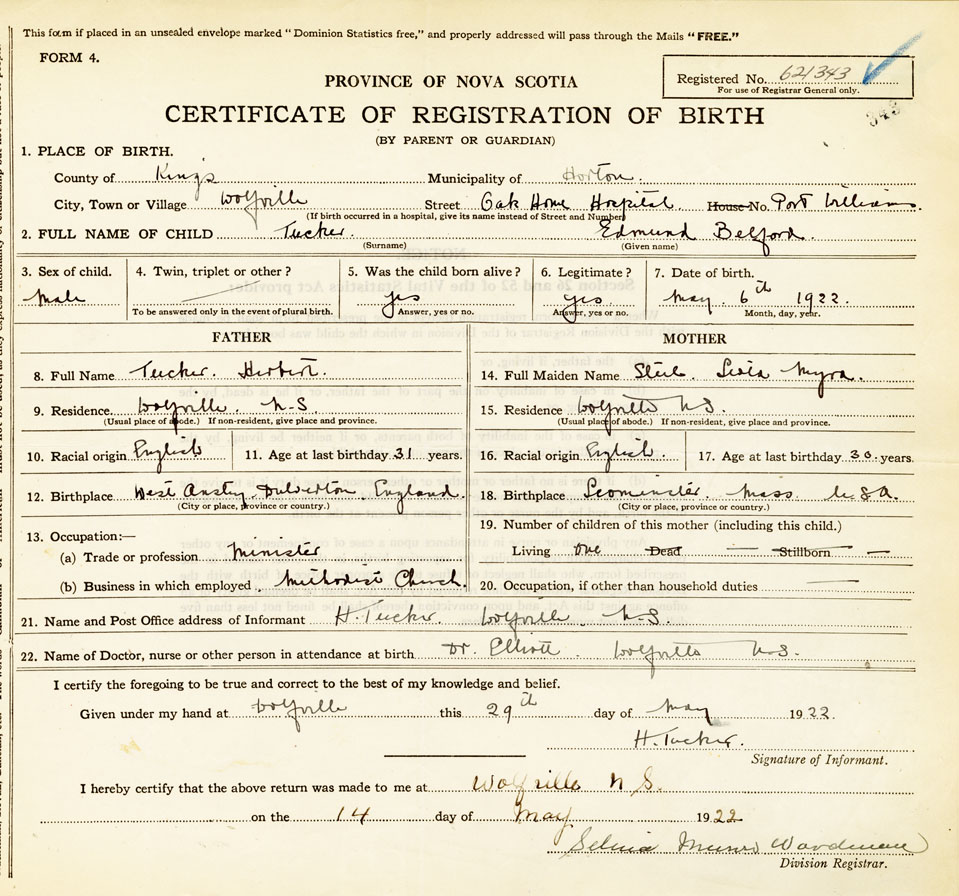 This form if placed in an unsealed envelope marked "Dominion Statistics free," and properly addressed will pass through the Mails "FREE."
FORM 4.
PROVINCE OF NOVA SCOTIA
Registered No. 621343
For use of Registrar General only.
348
CERTIFICATE OF REGISTRATION OF BIRTH
(BY PARENT OR GUARDIAN)
1. PLACE OF BIRTH.
County of King's Municipality of Horton.
City, Town or Village Wolfville Street Oak Home Hospital. House No. Port Williams.
(If birth occurred in a hospital, give its name instead of Street and Number)
2. FULL NAME OF CHILD Tucker. Edmund Belford.
(Surname) (Given name)
3. Sex of child. 4. Twin, triplet or other? 5. Was the child born alive? 6. Legitimate? 7. Date of birth.
Male yes yes. May. 6th 1922.
To be answered only in the event of plural birth. Answer, yes or no. Answer, yes or no. Month, day, year.
FATHER MOTHER
8. Full Name Tucker. Herbert. 14. Full Maiden Name Myra.
9. Residence. Wolfville. N-S. 15. Residence Wolfville NS.
(Usual place of abode.) If non-resident, give place and province. (Usual place of abode.) If non-resident, give place and province.
10. Racial origin English 11. Age at last birthday 31 years. 16. Racial origin English. 17. Age at last birthday 30 years.
12. Birthplace West Anstey, Dulverton, England. 18. Birthplace Leominster. Mass. USA.
(City or place, province or country.) (City or place, province or country.)
13. Occupation:— 19. Number of children of this mother (including this child.)
(a) Trade or profession Minister Living one Dead — Stillborn —
(b) Business in which employed. Methodist Church. 20. Occupation, if other than household duties —
21. Name and Post Office address of Informant H. Tucker. Wolfville. N-S.
22. Name of Doctor, nurse or other person in attendance at birth Dr. Elliott. Wolfville N-S.
I certify the foregoing to be true and correct to the best of my knowledge and belief.
Given under my hand at Wolfville this 29th day of May 1922.
H. Tucker.
Signature of Informant.
I hereby certify that the above return was made to me at Wolfville N S.
on the 14 day of May 1922
Munro Woodman
Division Registrar.